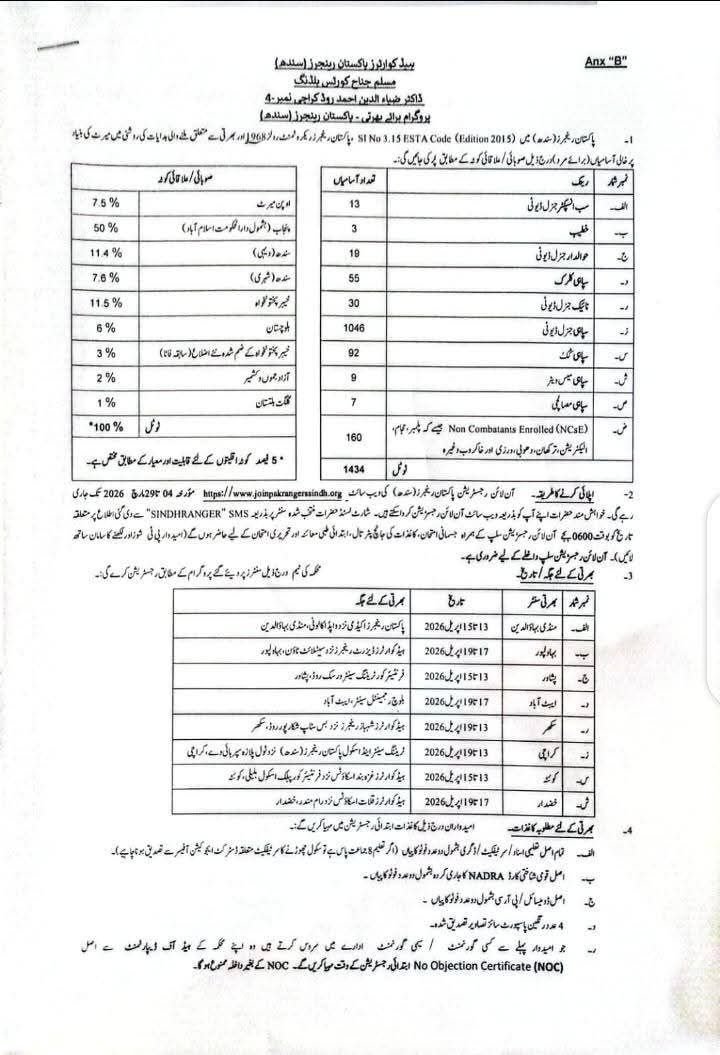 Anx "B"
ہیڈ کوارٹرز پاکستان رینجرز (سندھ)
مسلم جناح کورٹس بلڈنگ
ڈاکٹر ضیاء الدین احمد روڈ کراچی نمبر-4
پروگرام برائے بھرتی - پاکستان رینجرز (سندھ)
1- پاکستان رینجرز (سندھ) میں SI No 3.15 ESTA Code (Edition 2015) ، پاکستان رینجرز ریکروٹمنٹ رولز 1968 اور بھرتی سے متعلق ملنے والی ہدایات کی روشنی میں میرٹ کی بنیاد
پر خالی آسامیاں (برائے مرد) درج ذیل صوبائی/علاقائی کوٹہ کے مطابق پر کی جائیں گی:۔
نمبر شمار رینک تعداد آسامیاں
الف۔ سب انسپکٹر جنرل ڈیوٹی 13
ب۔ خطیب 3
ج۔ حوالدار جنرل ڈیوٹی 19
د۔ سپاہی کلرک 55
ر۔ نائیک جنرل ڈیوٹی 30
ز۔ سپاہی جنرل ڈیوٹی 1046
س۔ سپاہی کک 92
ش۔ سپاہی میس ویٹر 9
ص۔ سپاہی مصالچی 7
ض۔ Non Combatants Enrolled (NCsE) جیسے کہ پلمبر، حجام،
الیکٹریشن، ترکھان، دھوبی، درزی اور خاکروب وغیرہ 160
ٹوٹل 1434
صوبائی/علاقائی کوٹہ
اوپن میرٹ 7.5 %
پنجاب (بشمول دارالحکومت اسلام آباد) 50 %
سندھ (دیہی) 11.4 %
سندھ (شہری) 7.6 %
خیبر پختونخواہ 11.5 %
بلوچستان 6 %
خیبر پختونخواہ کے ضم شدہ نئے اضلاع (سابقہ فاٹا) 3 %
آزاد جموں و کشمیر 2 %
گلگت بلتستان 1 %
ٹوٹل 100 %*
* 5 فیصد کوٹہ اقلیتوں کے لئے قابلیت اور معیار کے مطابق مختص ہے۔
2- اپلائی کرنے کا طریقہ۔ آن لائن رجسٹریشن پاکستان رینجرز (سندھ) کی ویب سائٹ https://www.joinpakrangerssindh.org مؤرخہ 04 تا 29 مارچ 2026 تک جاری
رہے گی۔ خواہش مند حضرات اپنے آپ کو بذریعہ ویب سائٹ آن لائن رجسٹریشن کرواسکتے ہیں۔ شارٹ لسٹڈ حضرات منتخب شدہ سنٹر پر بذریعہ "SINDHRANGER" SMS سے دی گئی اطلاع پر متعلقہ
تاریخ کو بوقت 0600 بجے آن لائن رجسٹریشن سلپ کے ہمراہ جسمانی امتحان، کاغذات کی جانچ پڑتال، ابتدائی طبی معائنہ اور تحریری امتحان کے لیے حاضر ہوں گے (امیدوار پی ٹی شوز اور لکھنے کا سامان ساتھ
لائیں)۔ آن لائن رجسٹریشن سلپ داخلے کے لیے ضروری ہے۔
3- بھرتی کے لئے جگہ/تاریخ۔ محکمہ کی ٹیم درج ذیل سنٹرز پر دیئے گئے پروگرام کے مطابق رجسٹریشن کرے گی:۔
نمبر شمار بھرتی سنٹر تاریخ بھرتی کے لئے جگہ
الف۔ منڈی بہاؤالدین 13 تا 15 اپریل 2026 پاکستان رینجرز اکیڈمی نزد واپڈا کالونی، منڈی بہاؤالدین
ب۔ بہاولپور 17 تا 19 اپریل 2026 ہیڈ کوارٹرز ڈیزرٹ رینجرز نزد سیٹلائٹ ٹاؤن، بہاولپور
ج۔ پشاور 13 تا 15 اپریل 2026 فرنٹیئر کور ٹریننگ سینٹر ورسک روڈ، پشاور
د۔ ایبٹ آباد 17 تا 19 اپریل 2026 بلوچ رجمنٹل سینٹر، ایبٹ آباد
ر۔ سکھر 13 تا 19 اپریل 2026 ہیڈ کوارٹرز شہباز رینجرز نزد بس سٹاپ شکارپور روڈ، سکھر
ز۔ کراچی 13 تا 19 اپریل 2026 ٹریننگ سینٹر اینڈ اسکول پاکستان رینجرز (سندھ) نزد ٹول پلازہ سپر ہائی وے، کراچی
س۔ کوئٹہ 13 تا 15 اپریل 2026 ہیڈ کوارٹرز غزہ بند اسکاؤٹس نزد فرنٹیئر کور پبلک اسکول بلیلی، کوئٹہ
ش۔ خضدار 17 تا 19 اپریل 2026 ہیڈ کوارٹرز قلات اسکاؤٹس نزد رام مندر، خضدار
4- بھرتی کے لئے مطلوبہ کاغذات۔ امیدواران درج ذیل کاغذات ابتدائی رجسٹریشن میں مہیا کریں گے:۔
الف۔ تمام اصل تعلیمی اسناد/سرٹیفکیٹ/ڈگری بشمول دو عدد فوٹو کاپیاں (اگر تعلیم 8 جماعت پاس ہے تو سکول چھوڑنے کا سرٹیفکیٹ متعلقہ ڈسٹرکٹ ایجوکیشن آفیسر سے تصدیق ہونا چاہیے)۔
ب۔ اصل قومی شناختی کارڈ NADRA کا جاری کردہ بشمول دو عدد فوٹو کاپیاں ۔
ج۔ اصل ڈومیسائل/پی آر سی بشمول دو عدد فوٹو کاپیاں ۔
د۔ 4 عدد رنگین پاسپورٹ سائز تصاویر تصدیق شدہ۔
ر۔ جو امیدوار پہلے سے کسی گورنمنٹ / نیم گورنمنٹ ادارے میں سروس کرتے ہیں وہ اپنے محکمہ کے ہیڈ آف ڈیپارٹمنٹ سے اصل
No Objection Certificate (NOC) ابتدائی رجسٹریشن کے وقت مہیا کریں گے۔ NOC کے بغیر داخلہ ممنوع ہوگا۔